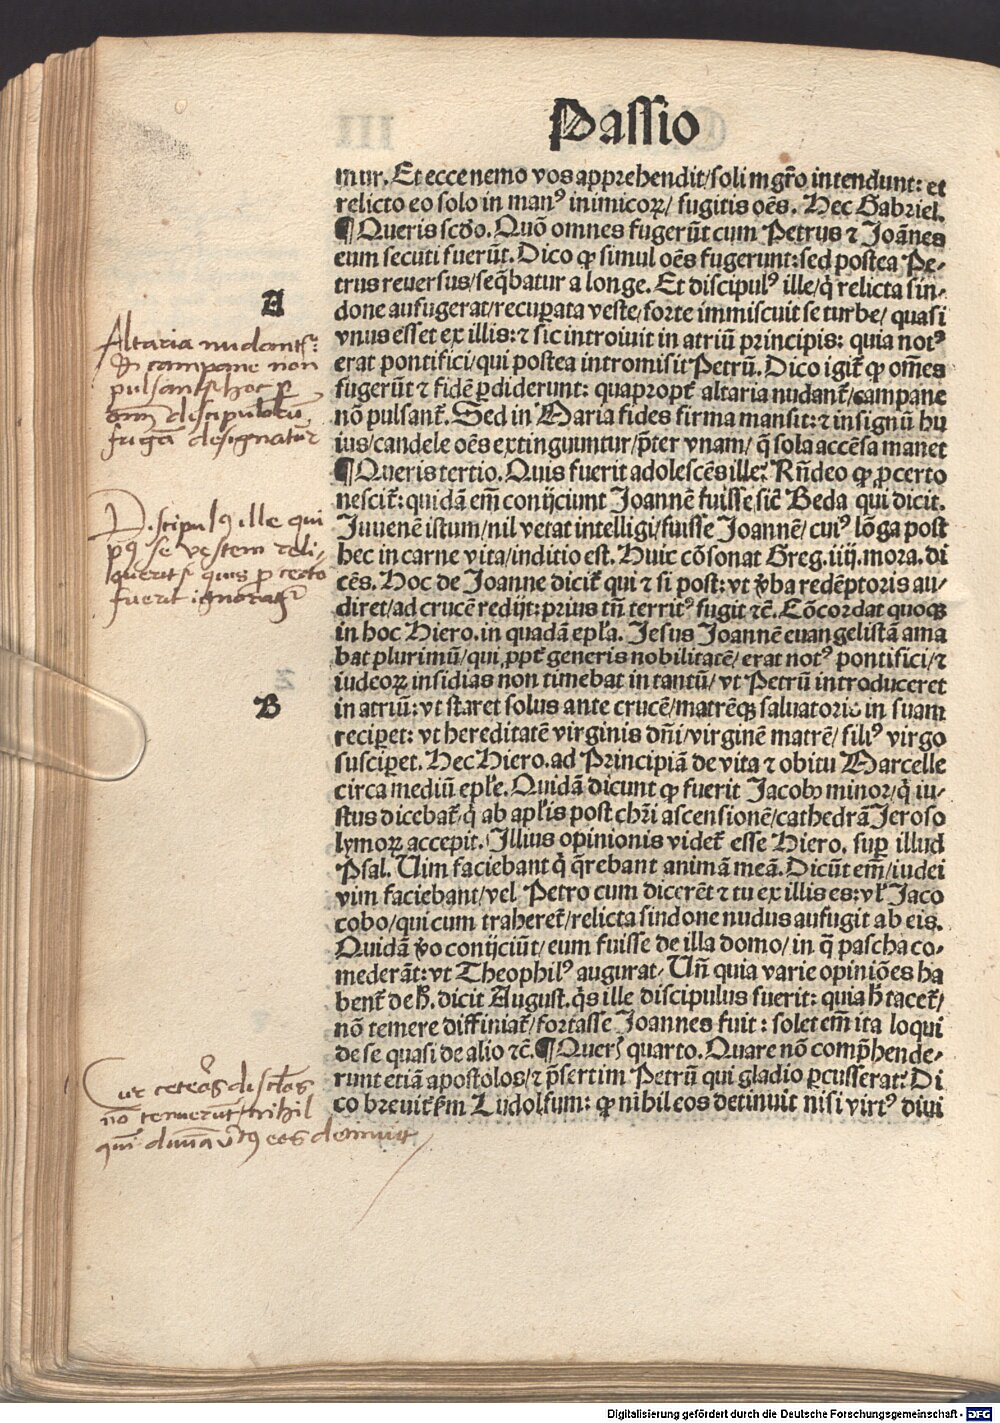 Passio
mur. Et ecce nemo vos apprehendit/soli mgr̄o intendunt: et
relicto eo solo in manꝰ inimicoꝝ/ fugitis oēs. Hec Gabriel.
¶ Queris scd̄o. Quō omnes fugerūt cum Petrus ⁊ Joānes
eum secuti fuerūt. Dico ꝙ simul oēs fugerunt: sed postea Pe-
trus reuersus/seq̄batur a longe. Et discipulꝰ ille/q̇ relicta sin-
done aufugerat/recuꝑata veste/forte immiscuit se turbe/ quasi
vnus esset ex illis: ⁊ sic introiuit in atriū principis: quia notꝰ
erat pontifici/qui postea intromisit Petrū. Dico igit̄ ꝙ om̄es
fugerūt ⁊ fidē ꝑdiderunt: quapropt̄ altaria nudant̄/campane
nō pulsant̄. Sed in Maria fides firma mansit: ⁊ in signū hu
ius/candele oēs extinguuntur/p̄ter vnam/ q̄ sola accēsa manet
¶ Queris tertio. Quis fuerit adolescēs ille? Rn̄deo ꝙ ꝓ certo
nescit̄: quidā em̄ conijciunt Joannē fuisse sic̄ Beda qui dicit.
Juuenē istum/nil vetat intelligi/fuisse Joannē/ cuiꝰ lōga post
hec in carne vita/inditio est. Huic cōsonat Greg. iiij. mora. di
cēs. Hoc de Joanne dicit̄ qui ⁊ si post: vt v̄ba redēptoris au-
diret/ad crucē redijt: prius tn̄ territꝰ fugit ⁊c̄. Cōcordat quoqꝫ
in hoc Hiero. in quadā epl̄a. Jesus Joannē euangelistā ama
bat plurimū/qui ꝓpt̄ generis nobilitatē/ erat notꝰ pontifici/⁊
iudeoꝝ insidias non timebat in tantū/ vt Petrū introduceret
in atriū: vt staret solus ante crucē/matrēqꝫ saluatoris in suam
reciꝑet: vt hereditatē virginis dn̄i/virginē matrē/ filiꝰ virgo
susciꝑet. Hec Hiero. ad Principiā de vita ⁊ obitu Marcelle
circa mediū epl̄e. Quidā dicunt ꝙ fuerit Jacobꝰ minor/q̇ iu-
stus dicebat̄/q̇ ab apl̄is post chr̄i ascensionē/cathedrā Jeroso
lymoꝝ accepit. Illius opinionis videt̄ esse Hiero. suꝑ illud
Psal. Uim faciebant q̇ q̄rebant animā meā. Dicūt em̄/iudei
vim faciebant/vel Petro cum dicerēt ⁊ tu ex illis es: vl̄ Jaco
cobo/qui cum traheret̄/relicta sindone nudus aufugit ab eis.
Quidā v̄o conijciūt/ eum fuisse de illa domo/ in q̄ pascha co-
mederāt: vt Theophilꝰ augurat. Un̄ quia varie opiniōes ha
bent̄ de h̄. dicit August. q̇s ille discipulus fuerit: quia h̄ tacet̄/
nō temere diffiniat̄/fortasse Joannes fuit: solet em̄ ita loqui
de se quasi de alio ⁊c̄. ¶ Queris quarto. Quare nō comp̄hende-
runt etiā apostolos/⁊ p̄sertim Petrū qui gladio ꝑcusserat? Di
co breuit̄ ẜm Ludolfum: ꝙ nihil eos detinuit nisi virtꝰ diui
A
Altaria nudant̄ʳ:
⁊ campane non
pulsant̄ʳ hoc ꝑ
discipuloꝝ
fugā designatur
Discipulꝰ ille qui
se vestem reli-
querit quis ꝓ certo
fuerit ignorat̄ʳ
B
Cur ceteros discl̄os
nō tenuerunt nihil
diuīa v̄tꝰ eos detinuit